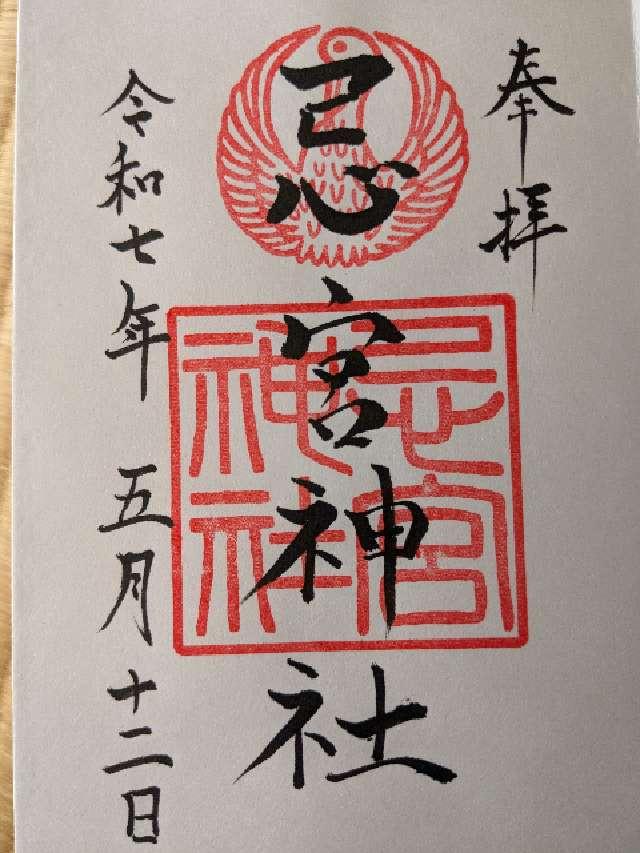 奉拝
忌宮神社
忌宮神社
令和七年 五月十二日